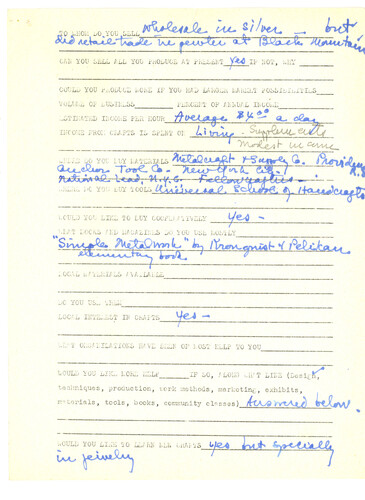 TO WHOM DO YOU SELL wholesale in silver — but
did retail trade in pewter at Black Mountain
CAN YOU SELL ALL YOU PRODUCE AT PRESENT yes IF NOT, WHY
COULD YOU PRODUCE MORE IF YOU HAD LARGER MARKET POSSIBILITIES
VOLUME OF BUSINESS PERCENT OF ANNUAL INCOME
ESTIMATED INCOME PER HOUR Average $4.00 a day
INCOME FROM CRAFTS IS SPENT ON Living - Supplements
modest income
WHERE DO YOU BUY MATERIALS Metalcraft & Supply Co. Providence R.I.
Anchor Tool Co. New York City -
National Lead, N.Y.C.
WHERE DO YOU BUY TOOLS Universal School of Handicrafts
WOULD YOU LIKE TO BUY COOPERATIVELY yes -
WHAT BOOKS AND MAGAZINES DO YOU USE MOSTLY
"Simple Metalwork" by Kronquist & Pelikan
elementary book
LOCAL MATERIALS AVAILABLE
DO YOU USE THEM
LOCAL INTEREST IN CRAFTS yes -
WHAT ORGANIZATIONS HAVE BEEN OF MOST HELP TO YOU
WOULD YOU LIKE MORE HELP IF SO, ALONG WHAT LINE (design,
techniques, production, work methods, marketing, exhibits,
materials, tools, books, community classes) Answered below.
WOULD YOU LIKE TO LEARN NEW CRAFTS yes but specially
in jewelry